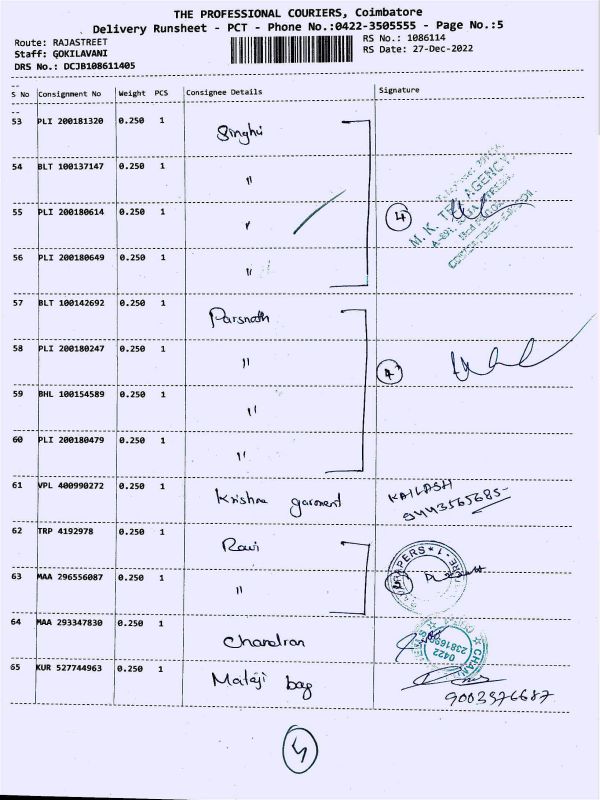 THE PROFESSIONAL COURIERS, Coimbatore
Delivery Runsheet - PCT - Phone No.:0422-3505555 - Page No.:5
Route: RAJASTREET
RS No.: 1086114
Staff: GOKILAVANI
RS Date: 27-Dec-2022
DRS No.: DCJB108611405
S No Consignment No Weight PCS Consignee Details Signature
53 PLI 200181320 0.250 1 Singhvi
54 BLT 100137147 0.250 1 "
55 PLI 200180614 0.250 1 "
4
M. K. AGENCY,
56 PLI 200180649 0.250 1 "
57 BLT 100142692 0.250 1 Parsnath
58 PLI 200180247 0.250 1 "
4
59 BHL 100154589 0.250 1 "
60 PLI 200180479 0.250 1 "
61 VPL 400990272 0.250 1 Krishna garment KAILASH
9443565685
62 TRP 4192978 0.250 1 Ravi
63 MAA 296556087 0.250 1 "
64 MAA 293347830 0.250 1 Chandran
0422
65 KUR 527744963 0.250 1 Mataji bag
9003976687